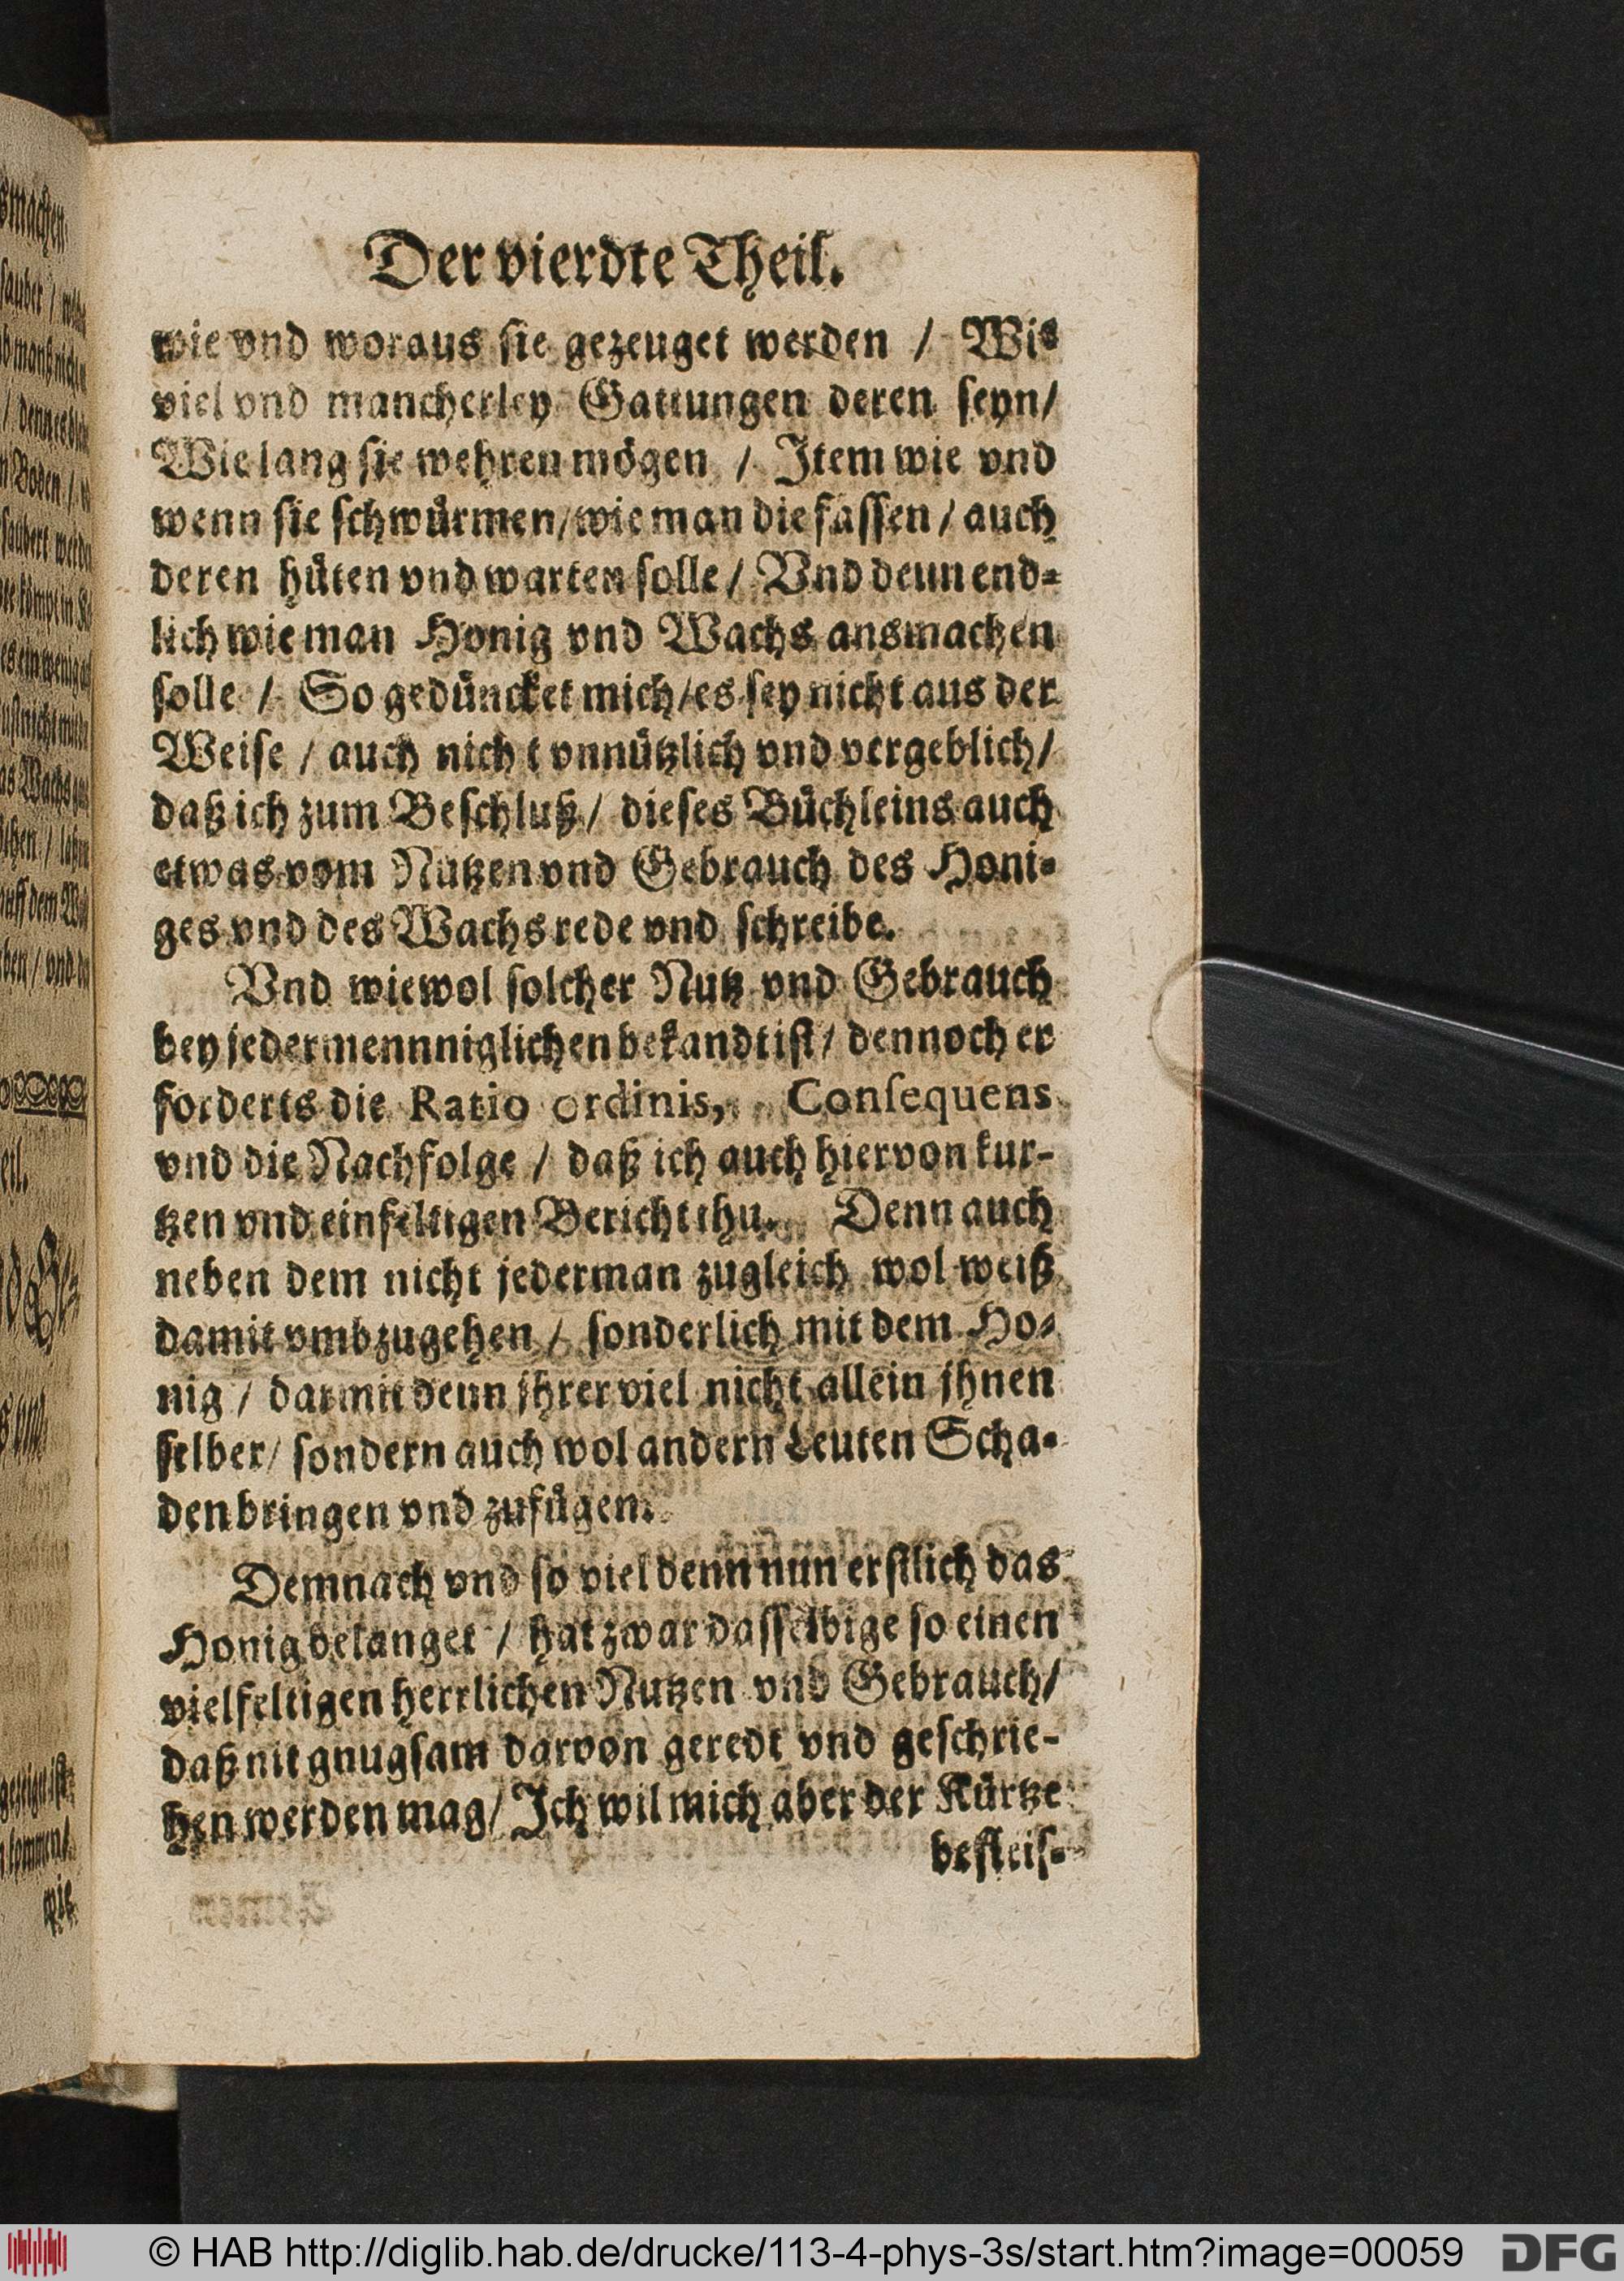 Der vierdte Theil.
wie vnd woraus sie gezeuget werden / Wie
viel vnd mancherley Gattungen deren seyn/
Wie lang sie wehren mögen / Item wie vnd
wenn sie schwürmen/wie man die fassen / auch
deren hüten vnd warten solle / Vnd denn end-
lich wie man Honig vnd Wachs ansmachen
solle / So gedüncket mich/es sey nicht aus der
Weise / auch nicht vnnützlich vnd vergeblich/
daß ich zum Beschluß / dieses Büchleins auch
etwas vom Nutzen vnd Gebrauch des Honi-
ges vnd des Wachs rede vnd schreibe.
Vnd wiewol solcher Nutz vnd Gebrauch
bey jedermennniglichen bekandt ist/ dennoch er
forderts die Ratio ordinis, Consequens
vnd die Nachfolge / daß ich auch hiervon kur-
tzen vnd einfeltigen Bericht thu. Denn auch
neben dem nicht jederman zugleich wol weiß
damit vmbzugehen / sonderlich mit dem Ho-
nig / darmit denn jhrer viel nicht allein jhnen
selber/ sondern auch wol andern Leuten Scha-
den bringen vnd zufügen.
Demnach vnd so viel denn nun erstlich das
Honig belanget / hat zwar dasselbige so einen
vielfeltigen herrlichen Nutzen vnd Gebrauch/
daß nit gnugsam darvon geredt vnd geschrie-
hen werden mag/ Ich wil mich aber der Kürtze
befleis-
© HAB http://diglib.hab.de/drucke/113-4-phys-3s/start.htm?image=00059
DFG